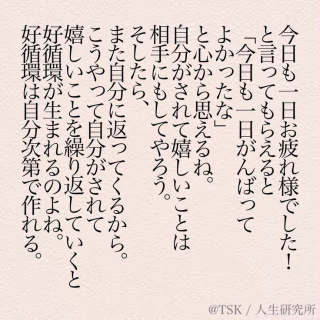 今日も一日お疲れ様でした！
と言ってもらえると
「今日も一日がんばって
よかったな」
と心から思えるね。
自分がされて嬉しいことは
相手にもしてやろう。
そしたら、
また自分に返ってくるから。
こうやって自分がされて
嬉しいことを繰り返していくと
好循環が生まれるのよね。
好循環は自分次第で作れる。
@TSK / 人生研究所